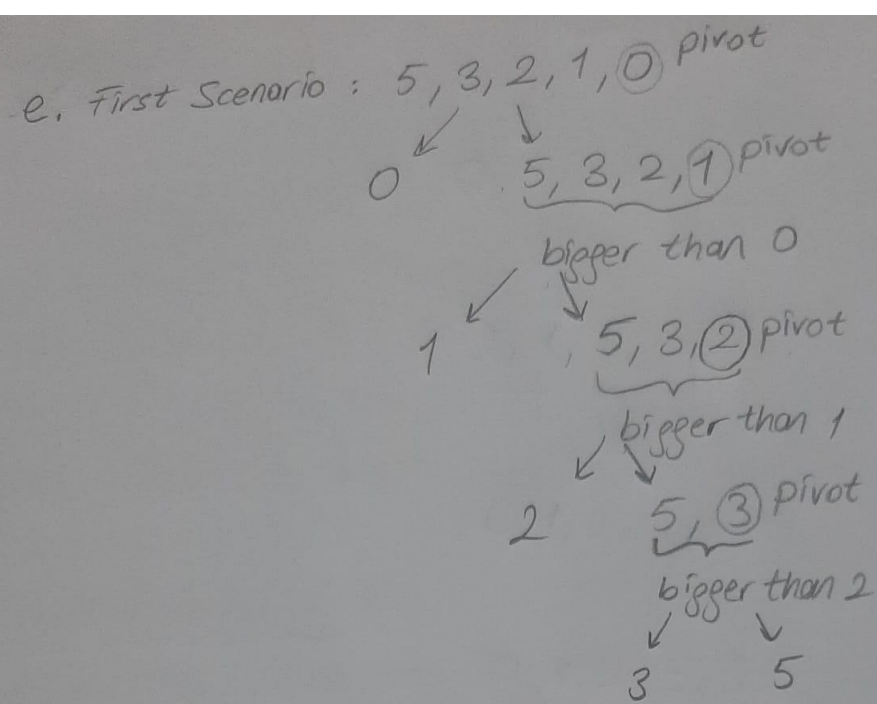 e. First Scenario : 5, 3, 2, 1, 0 pivot
0 5, 3, 2, 1 pivot
bigger than 0
1 5, 3, 2 pivot
bigger than 1
2 5, 3 pivot
bigger than 2
3 5